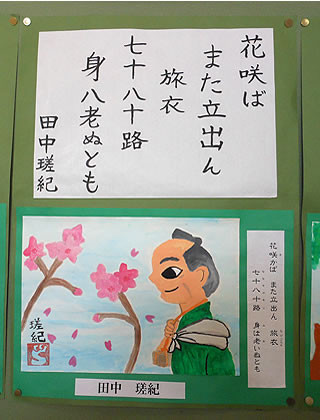 花咲ば
また立出ん
旅衣
七十八十路
身八老ぬとも
田中瑳紀
花咲かば また立出ん 旅衣
七十八十路 身は老いぬとも
瑳紀
田中 瑳紀